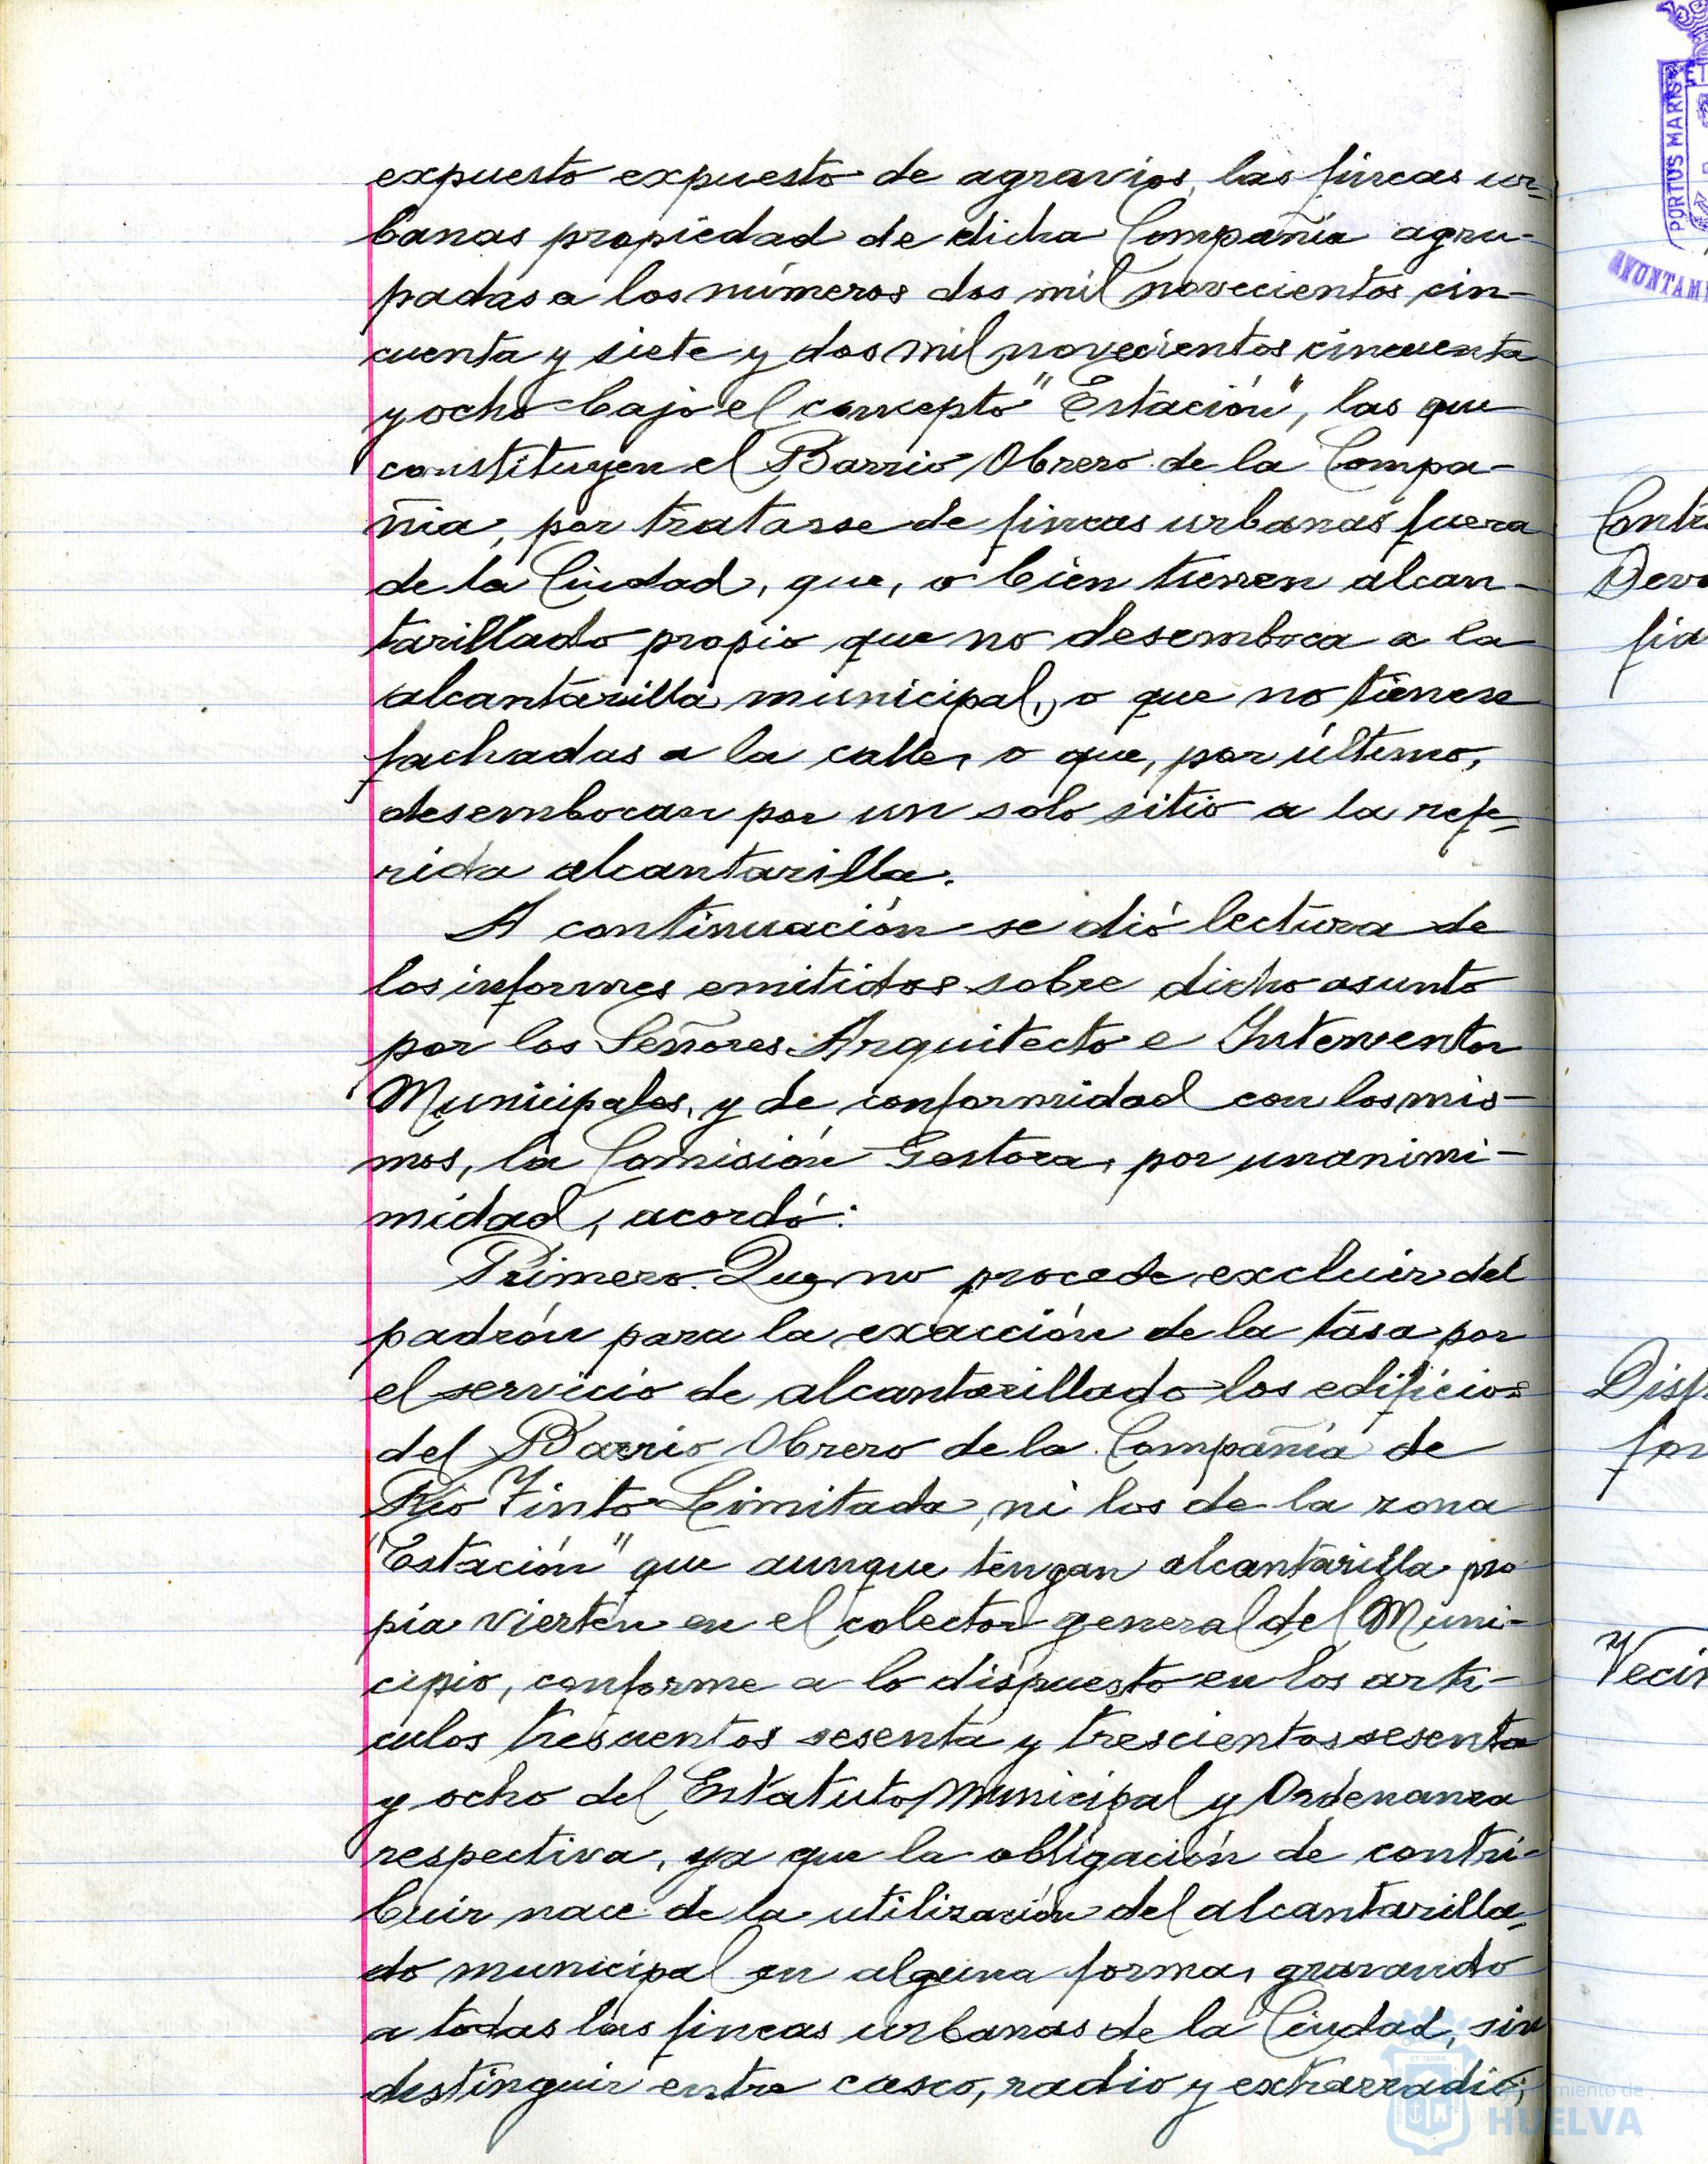 expuesto expuesto de agravios, las fincas ur-
banas propiedad de dicha Compañía agru-
padas a los números dos mil novecientos cin-
cuenta y siete y dos mil novecientos cincuenta
y ocho bajo el concepto "Estación", las que
constituyen el Barrio Obrero de la Compa-
ñia, por tratarse de fincas urbanas fuera
de la Ciudad, que, o bien tienen alcan-
tarillado propio que no desemboca a la
alcantarilla municipal, o que no tienen
fachadas a la calle, o que, por último,
desembocan por un solo sitio a la refe-
rida alcantarilla.
A continuación se dió lectura de
los informes emitidos sobre dicho asunto
por los Señores Arquitecto e Interventor
Municipales, y de conformidad con los mis-
mos, la Comisión Gestora, por unanimi-
midad, acordó:
Primero. Que no procede excluir del
padrón para la exacción de la tasa por
el servicio de alcantarillado los edificios
del Barrio Obrero de la Compañía de
Rio Tinto Limitada, ni los de la zona
"Estación" que aunque tengan alcantarilla pro
pia vierten en el colector general del Muni-
cipio, conforme a lo dispuesto en los artí-
culos trescientos sesenta y trescientos sesenta
y ocho del Estatuto Municipal y Ordenanza
respectiva, ya que la obligación de contri-
buir nace de la utilización del alcantarilla-
do municipal en alguna forma, gravando
a todas las fincas urbanas de la Ciudad, sin
distinguir entre casco, radio y extrarradio;
PORTUS MARIS
AYUNTAMI
Contr
Devo
fia
Disp
for
Vecin
miento de
HUELVA